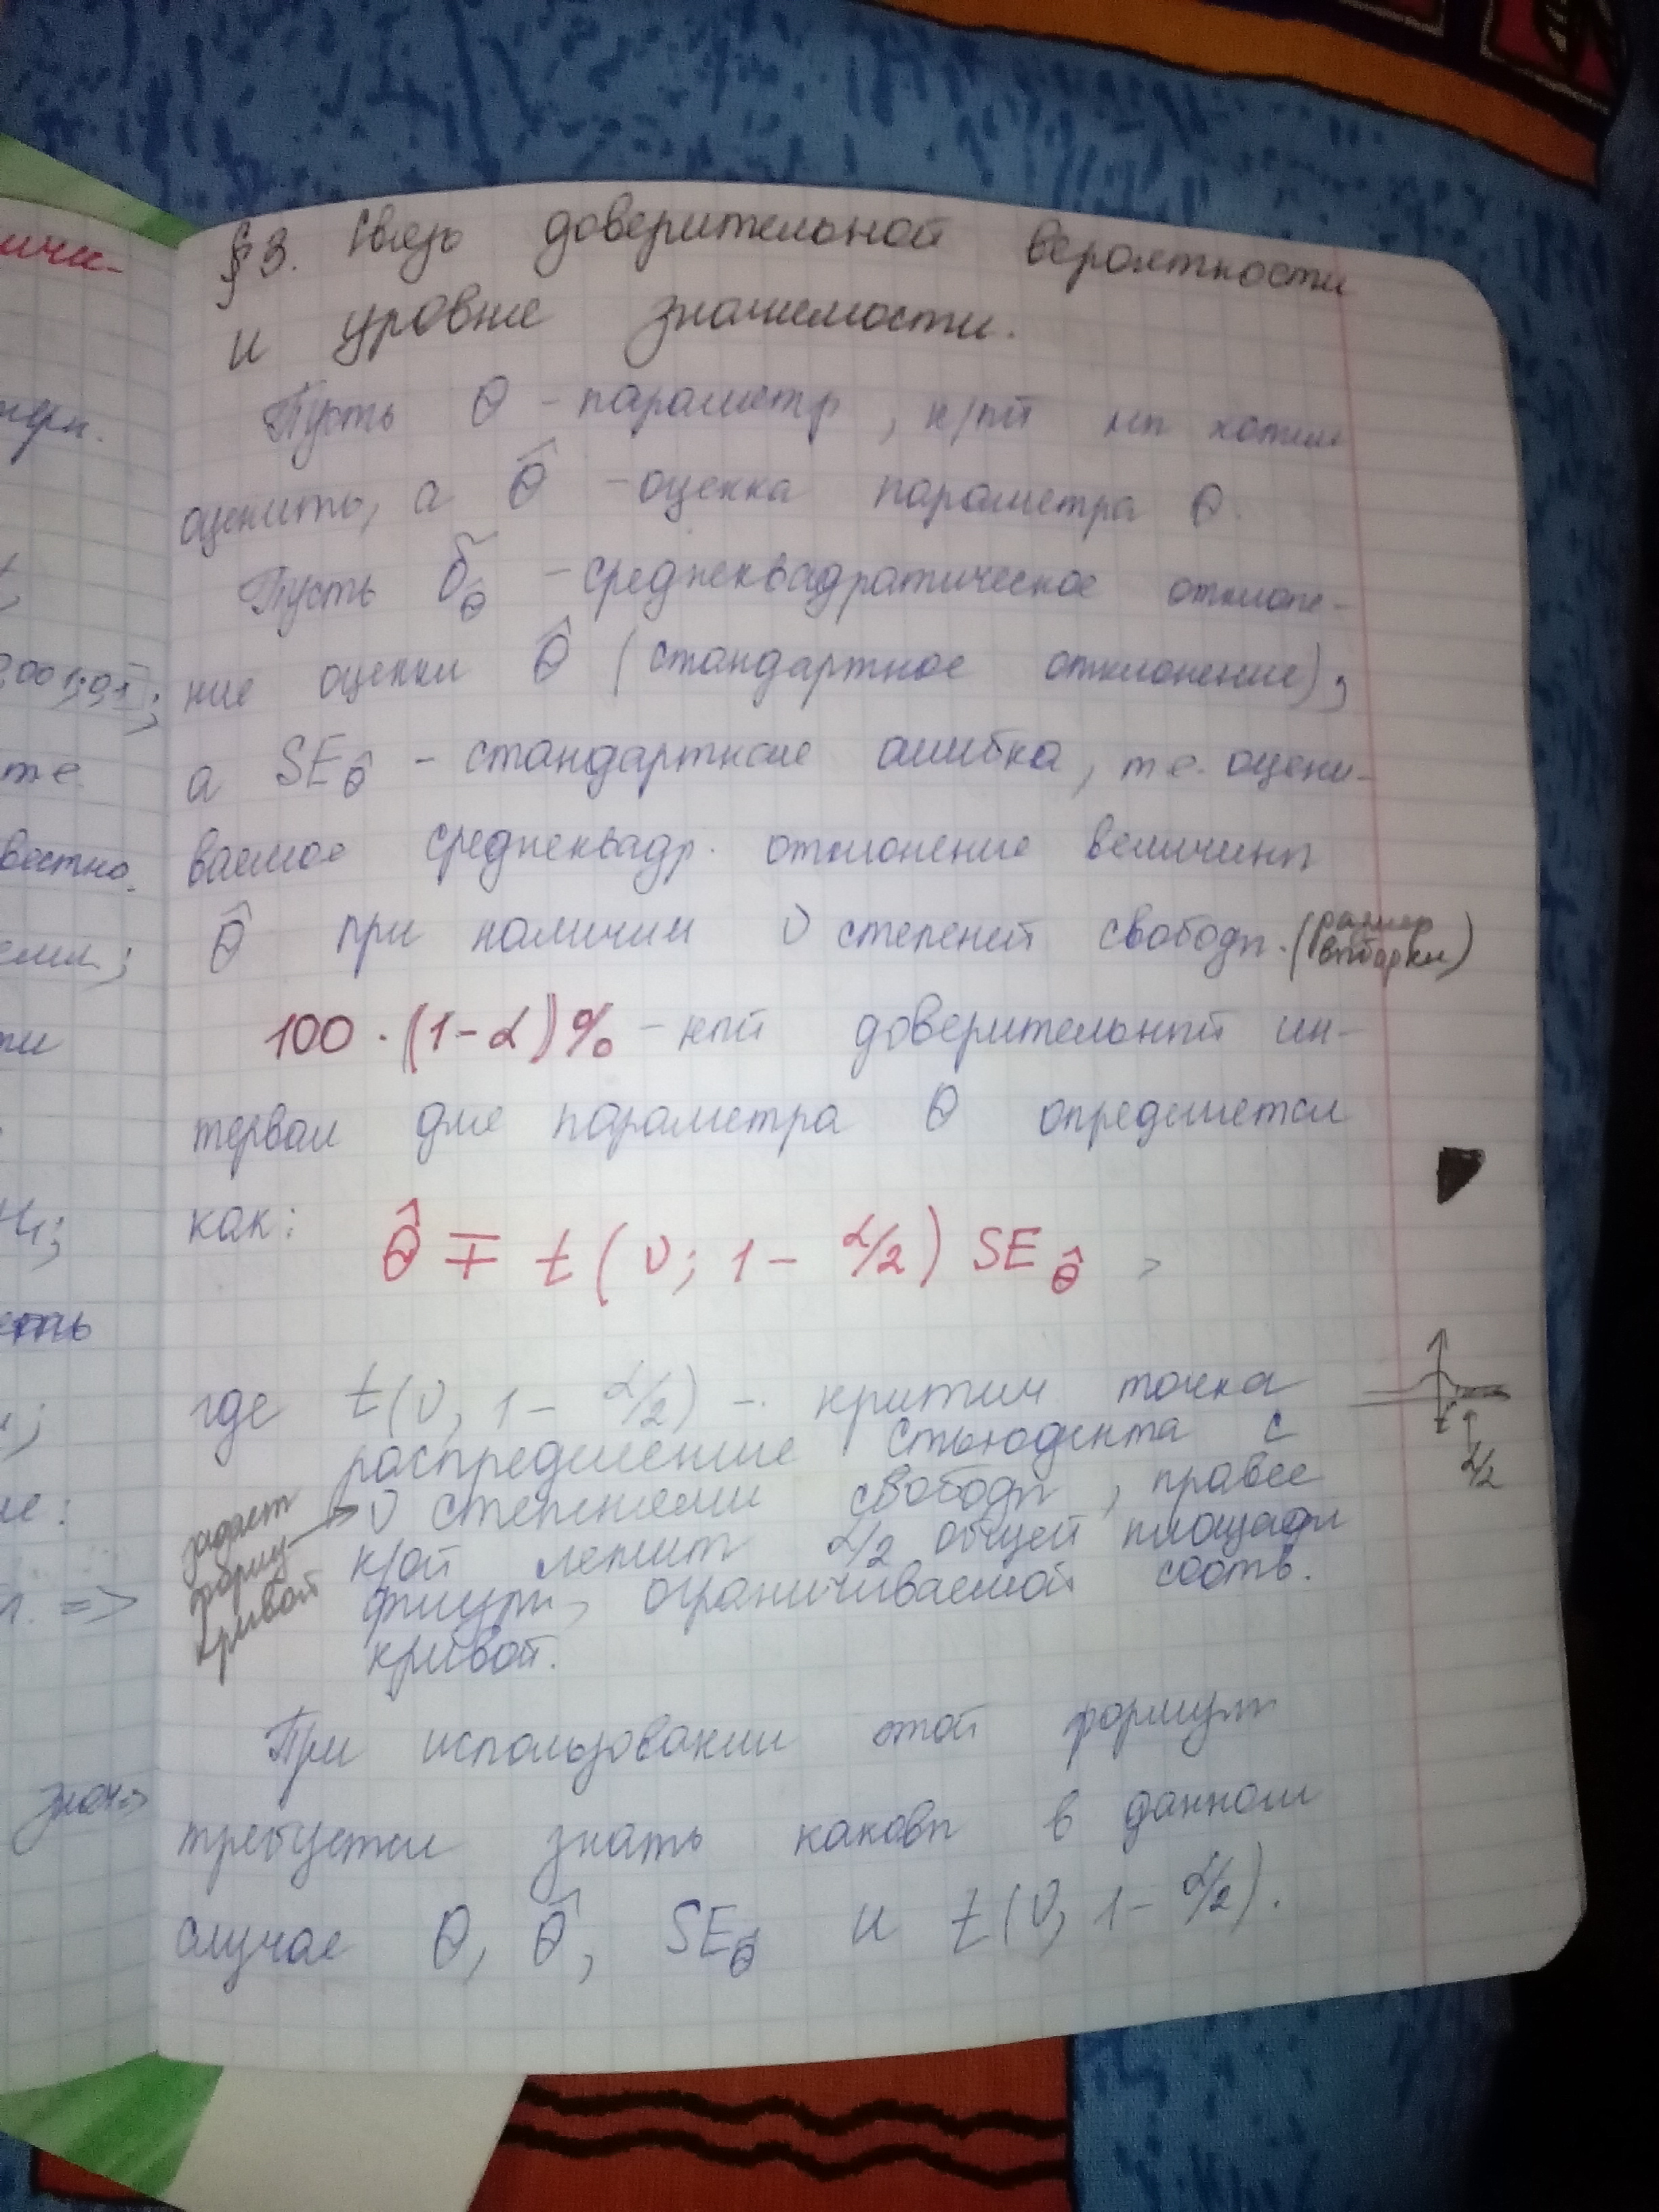 §3. Связь доверительной вероятности
и уровня значимости.
Пусть θ - параметр, к/рый мы хотим
оценить, а θ̂ - оценка параметра θ.
Пусть σ_θ̂ - среднеквадратическое отклоне-
ние оценки θ̂ (стандартное отклонение),
а SE_θ̂ - стандартная ошибка, т.е. оцени-
ваемое среднеквадр. отклонение величины
θ̂ при наличии ν степеней свободы. (размер
выборки)
100·(1-α)% - ный доверительный ин-
тервал для параметра θ определяется
как: θ̂ ∓ t(ν; 1 - α/2) SE_θ̂ ,
где t(ν, 1 - α/2) - критич точка
распределение Стьюдента с
ν степенями свободы, правее
к/ой лежит α/2 общей площади
фигуры, ограничиваемой соотв.
кривой.
задает
форму
кривой
α/2
При использовании этой формулы
требуется знать каковы в данном
случае θ, θ̂, SE_θ̂ и t(ν, 1 - α/2).
ичи-
0,001; 0,1];
те
H₁;
=>